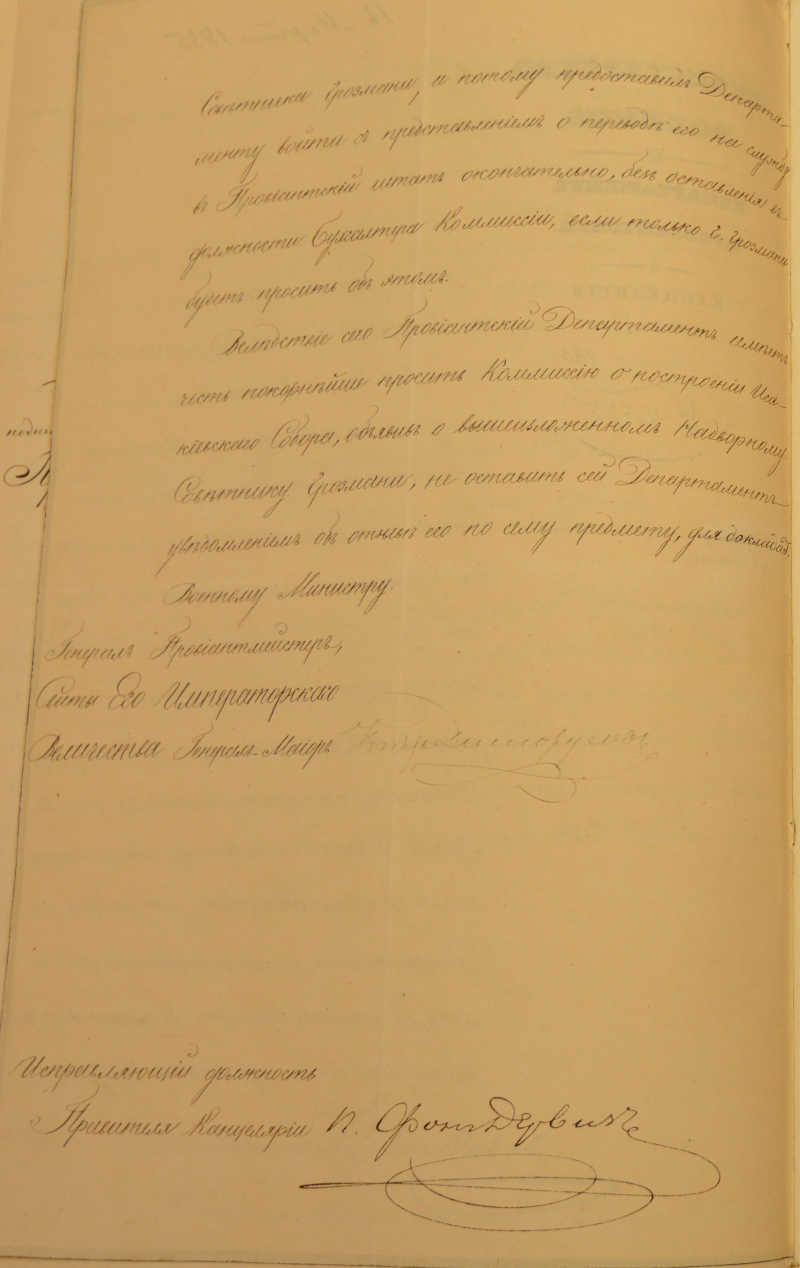 Совѣтника Грозмани, а потому предоставилъ Департа-
менту войти съ представленіемъ о переводѣ его на службу
въ Провіантскій штатъ окончательно, безъ оставленія въ
должности Бухгалтера Коммиссіи, если только Г. Грозмани
будетъ просить объ этомъ.
Вслѣдствіе сего Провіантскій Департаментъ имѣетъ
честь покорнѣйше просить Коммиссію о построеніи Иса-
кіевскаго Собора, объявивъ о вышеизложенномъ Надворному
Совѣтнику Грозмани, не оставить сей Департаментъ
увѣдомленіемъ объ отзывѣ его по сему предмету, для доклада
Военному Министру.
Генералъ Провіантмейстеръ,
Свиты Его Императорскаго
Величества Генералъ-Маіоръ
Исправляющій должность
Правителя Канцеляріи П. Фонъ Дервизъ